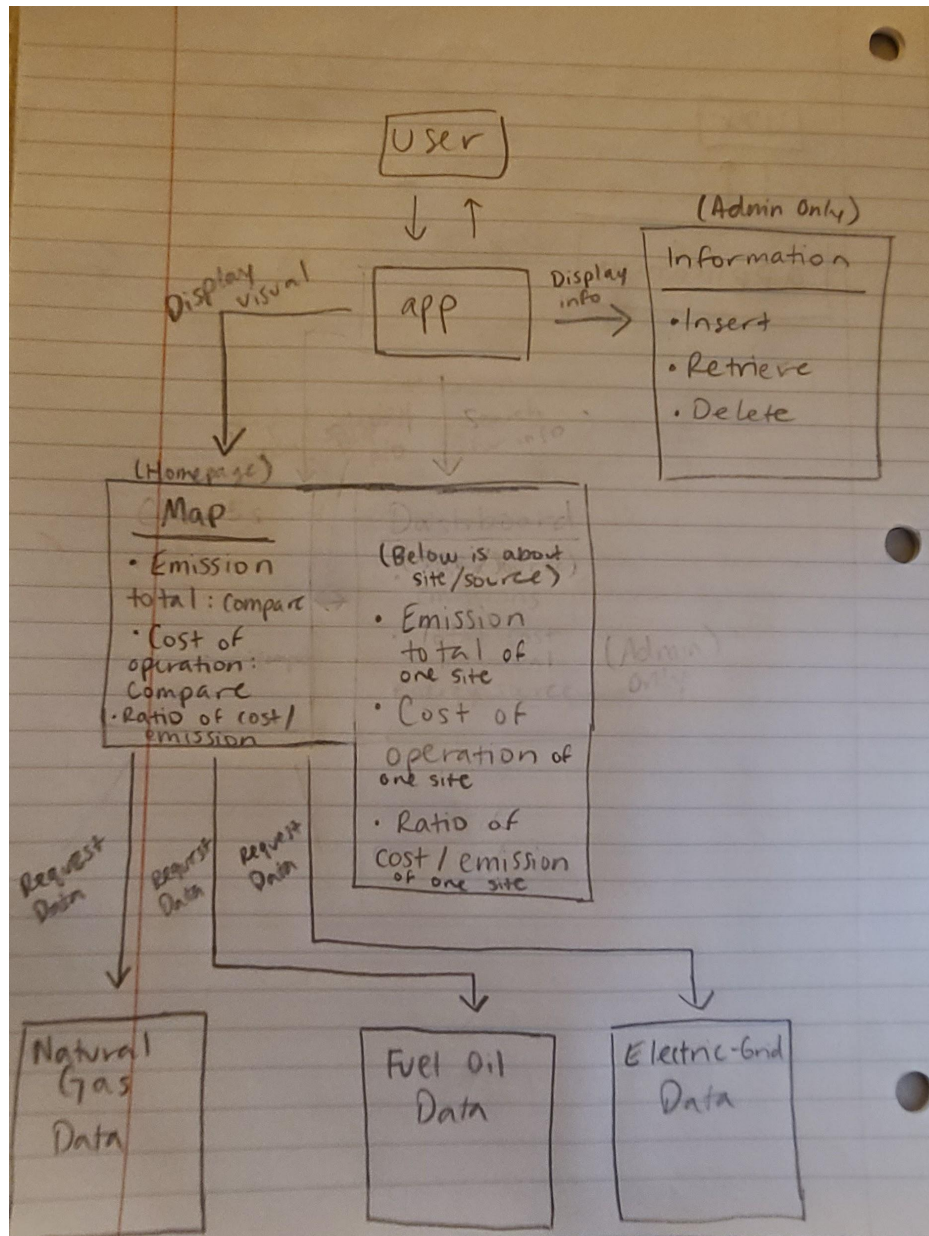 User
(Admin Only)
Information
• Insert
• Retrieve
• Delete
app
Display
info
Display
visual
(Homepage)
Map
• Emission
total: Compare
• Cost of
operation:
Compare
• Ratio of cost/
emission
Dashboard
(Below is about
site/source)
• Emission
total of
one site
• Cost of
operation of
one site
• Ratio of
cost/emission
of one site
(Admin
only)
Request
Data
Request
Data
Request
Data
Natural
Gas
Data
Fuel Oil
Data
Electric-Grid
Data